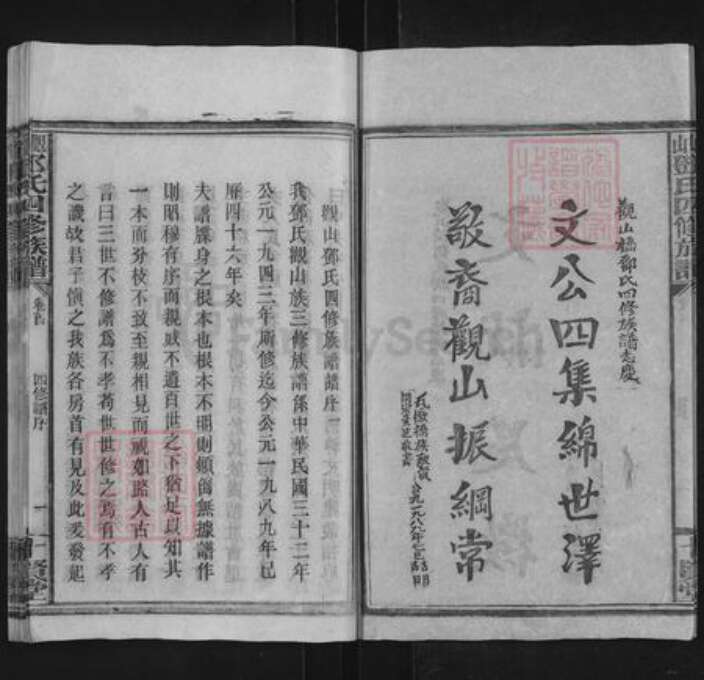 觀山橋鄧氏四修族譜志慶
文公四集綿世澤
敬裔觀山振綱常
鄧氏四修族譜
觀山鄧氏四修族譜譜序
我鄧氏觀山族三修族譜係中華民國三十二年
公元一九四三年所修迄今公元一九八九年已
歷四十六年矣
夫譜牒身之根本也根本不明則頭舊無據譜作
則昭穆有序而親戚不遺百世之下猶足以知其
一本而分枝不致至親相見而視如路人古人有
言曰三世不修譜爲不孝苟世世修之焉有不孝
之譏故君子慎之我族各房首有見及此爰發起
鄧氏四修族譜
卷首
四修譜序
一